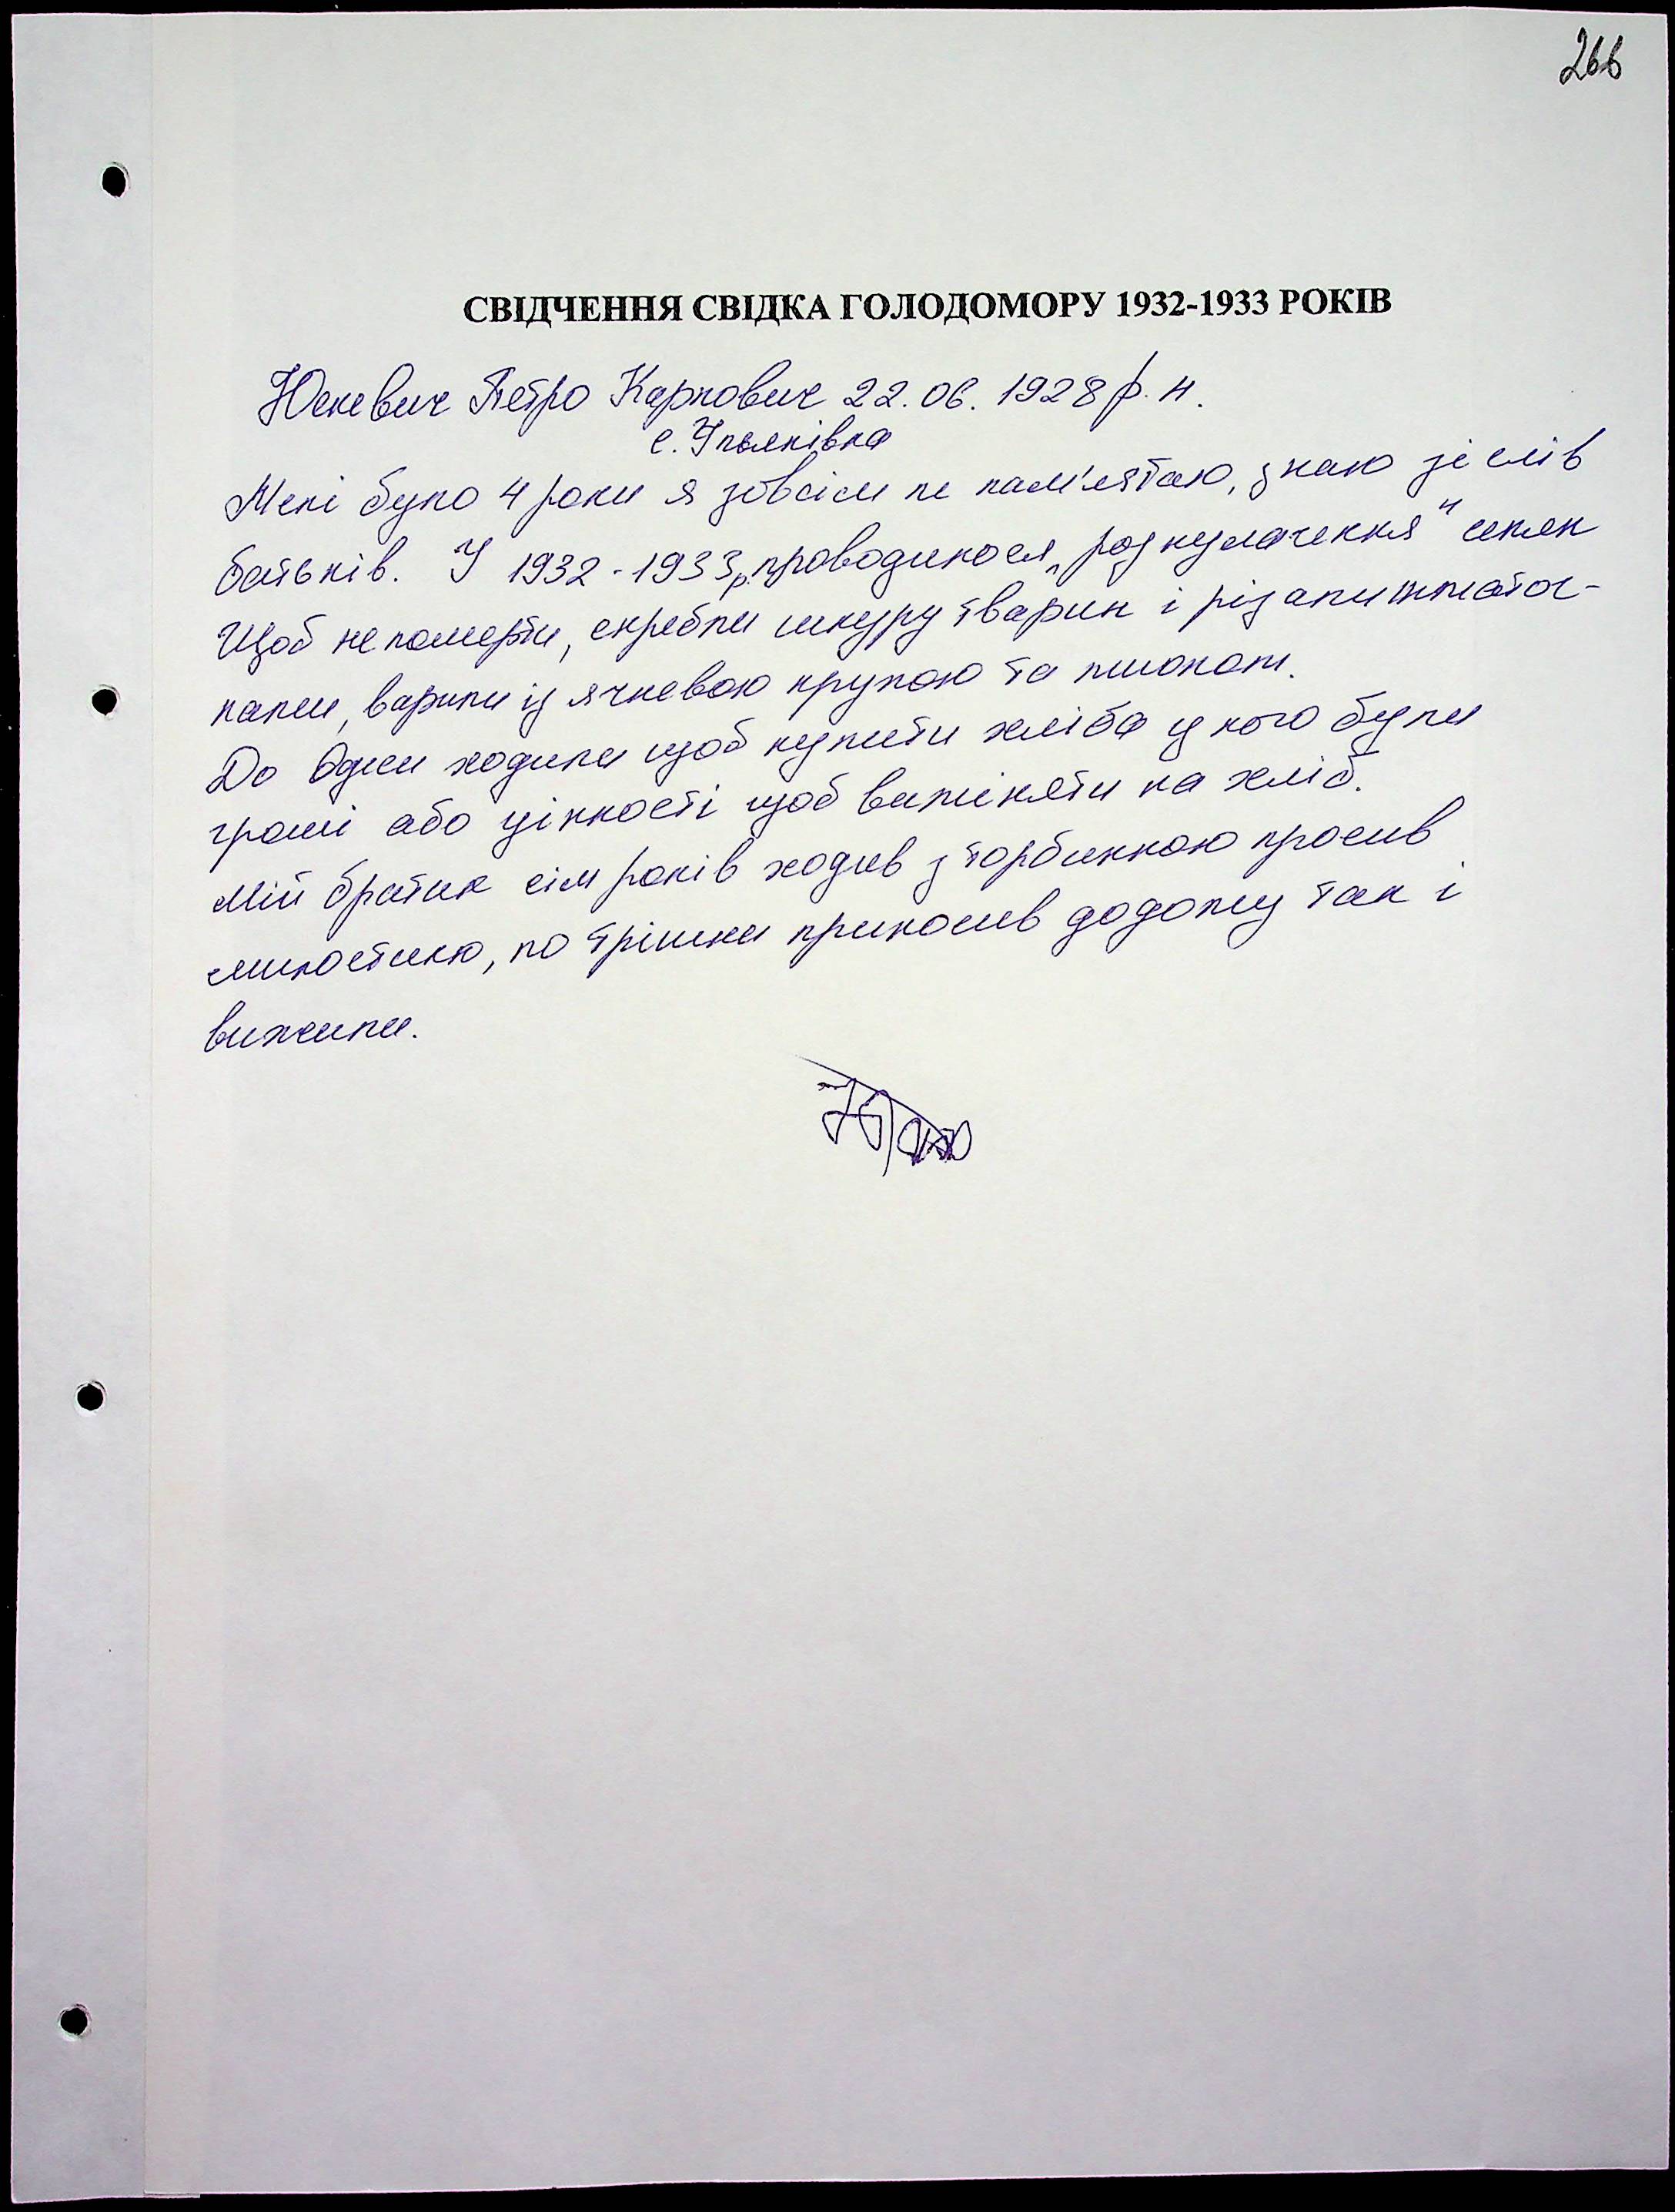 266
СВІДЧЕННЯ СВІДКА ГОЛОДОМОРУ 1932-1933 РОКІВ
Юкевич Петро Карпович 22.06.1928 р.н.
с. Ульянівка
Мені було 4 роки я зовсім не пам'ятаю, знаю зі слів
батьків. У 1932-1933р. проводилося „розкулачення" селян
Щоб не померти, скребли шкуру тварин і різали шматоч-
ками, варили із ячневою крупою та пшоном.
До Одеси ходили щоб купити хліба у кого були
гроші або цінності щоб виміняти на хліб.
Мій братик сім років ходив з торбинкою просив
милостиню, по трішки приносив додому так і
вижили.